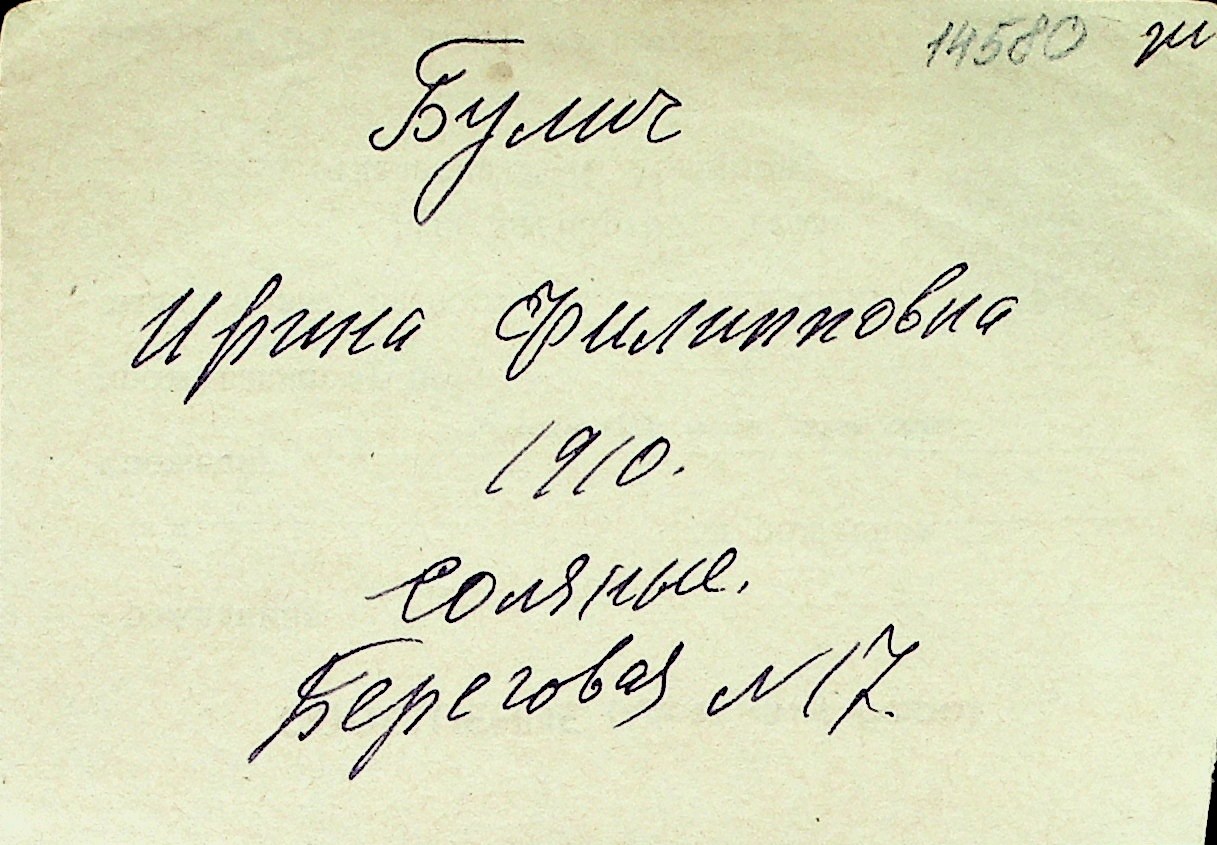 14580 ж
Булич
Ирина Филипповна
1910.
соляные.
Береговая №17.